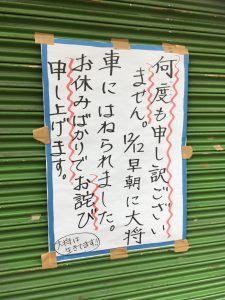 何度も申し訳ござい
ません。12/12早朝に大将
車にはねられました。
お休みばかりでお詫び
申し上げます。
大将は
生きてます!